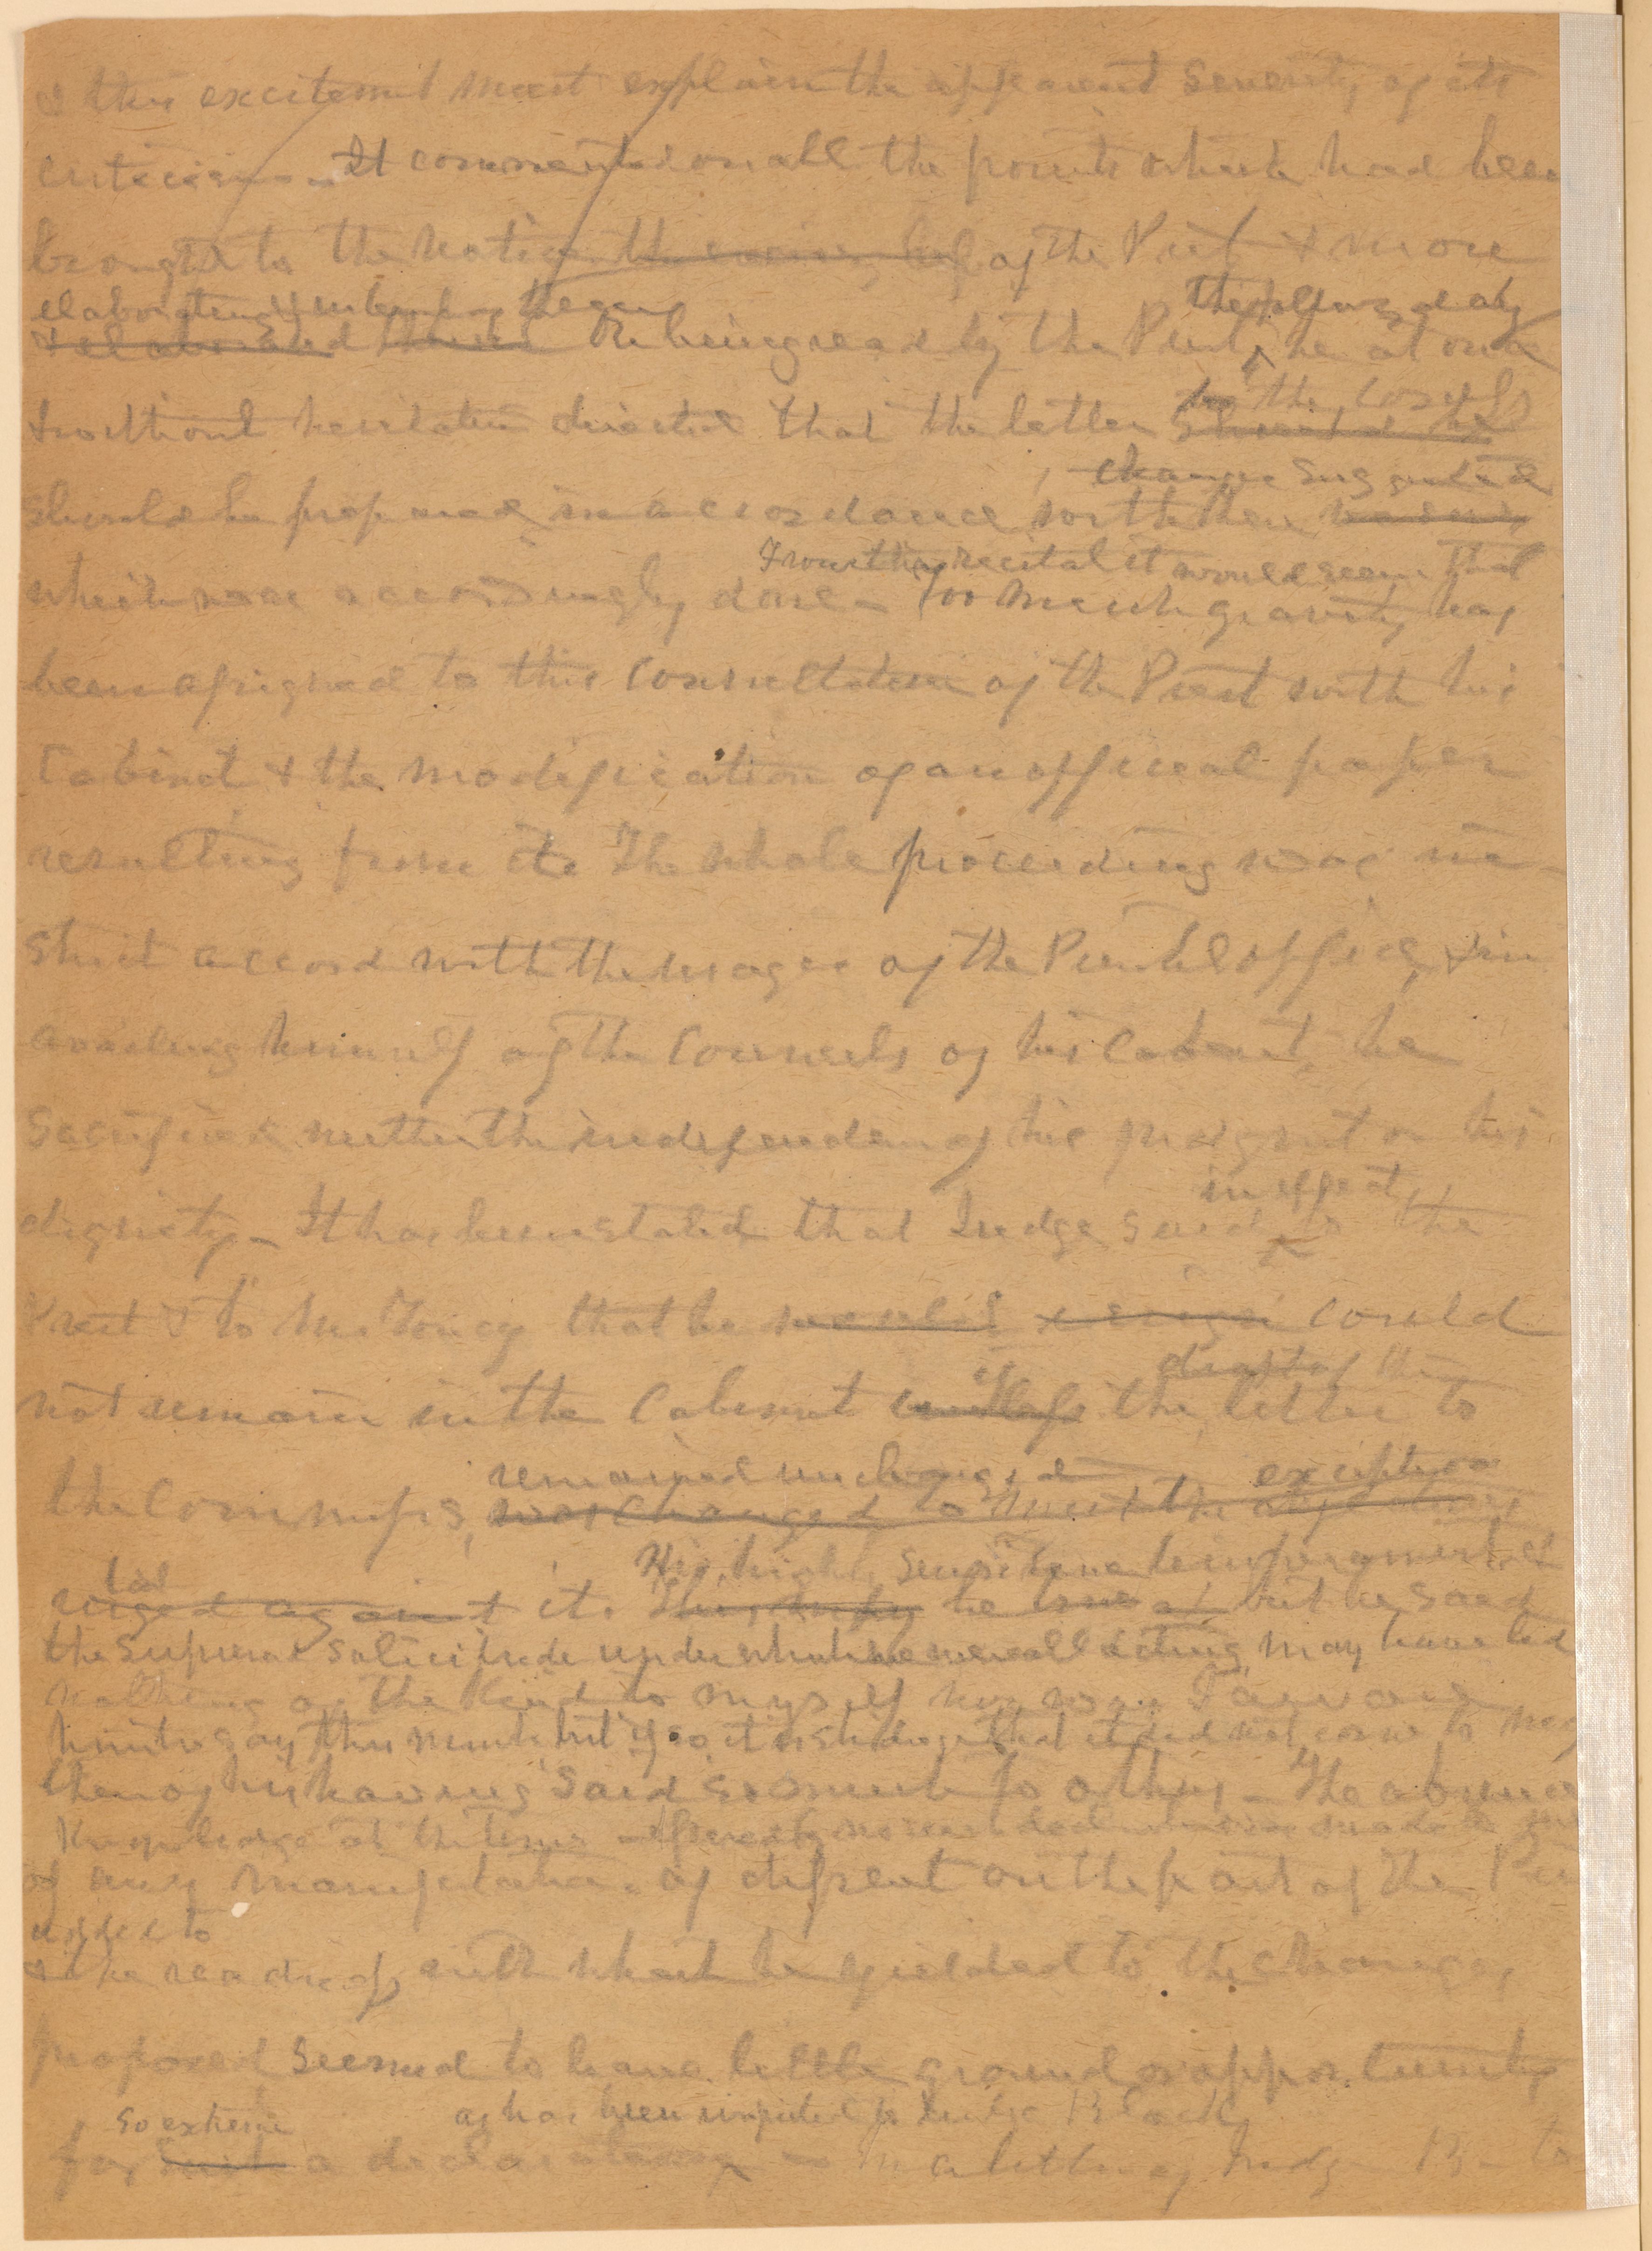 & this excitement must explain the apparent severity of its
criticisms. It commented on all the points which had been
brought to the notice of the Prest & more
elaborating & them
& elaborated On being read by the Prest, he at once
the following day
& without hesitation directed that the letter should be
to the Comrs
should be prepared in accordance with the
changes suggested
which was accordingly done - Too much gravity has
From this recital it would seem that
been assigned to this consultation of the Prest with his
Cabinet & the modification of an official paper
resulting from it. The whole proceeding was in
strict accord with the usages of the Prestl office, & in
availing himself of the Counsels of his Cabinet, he
sacrificed neither the independence of his judgment or his
dignity - It has been stated that Judge said to the
in effect
Prest & to Mr Toucey that he would resign could
not remain in the Cabinet unless the letter to
if draft of the
the Commrs, was changed to meet the objections
remained unchanged exception
urged against it. he but he said
His highly sensitive temperament &
the supreme solicitude under which we were all acting may have led
nothing of the kind to myself nor was I aware
him to say this much but if so it is strange that it did not come to my
then of his having said so much to others - The absence
knowledge at the time
of any manifestation of dissent on the part of the Prest
added to
& the readiness with which he yielded to the changes
proposed seemed to leave little ground or opportunity
so extreme as has been imputed to Judge Black
for such a declaration - In a letter of Judge B- to